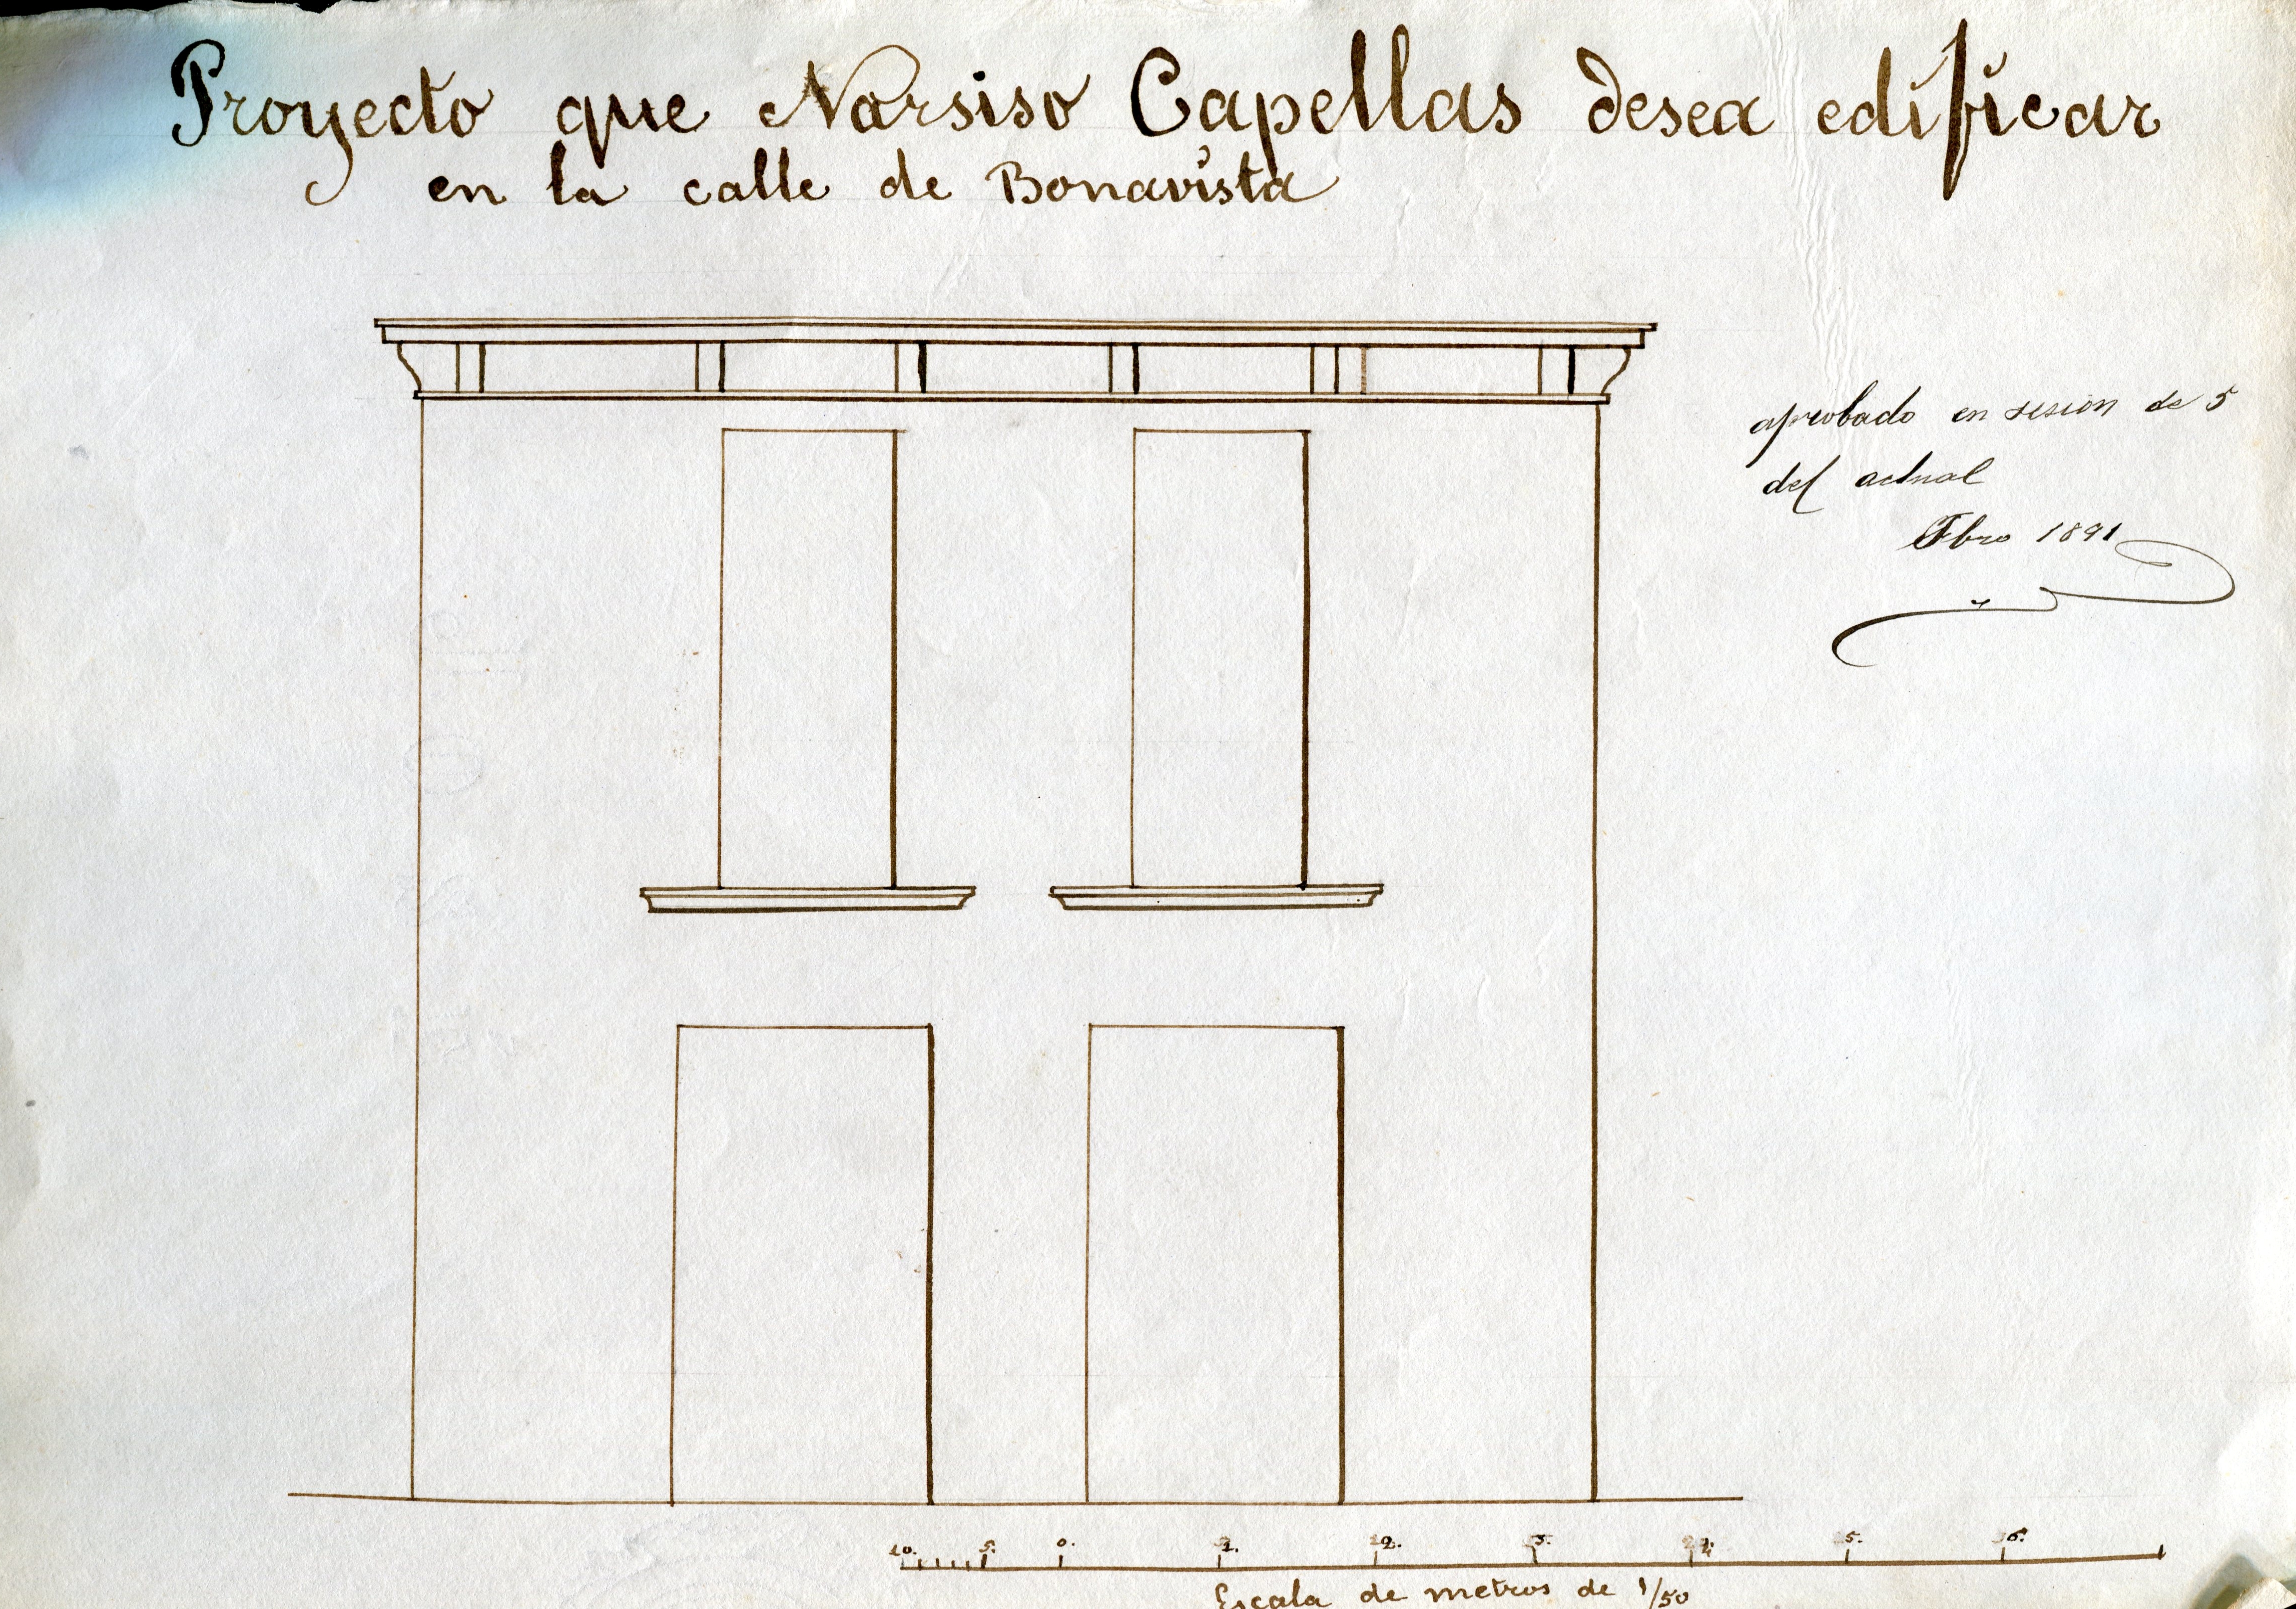 Proyecto que Narsiso Capellas desea edificar
en la calle de Bonavista
aprobado en sesion de 5
del actual
Fbro 1891
10. 5. 0. 1. 2. 3. 4. 5. 6.
Escala de metros de 1/50